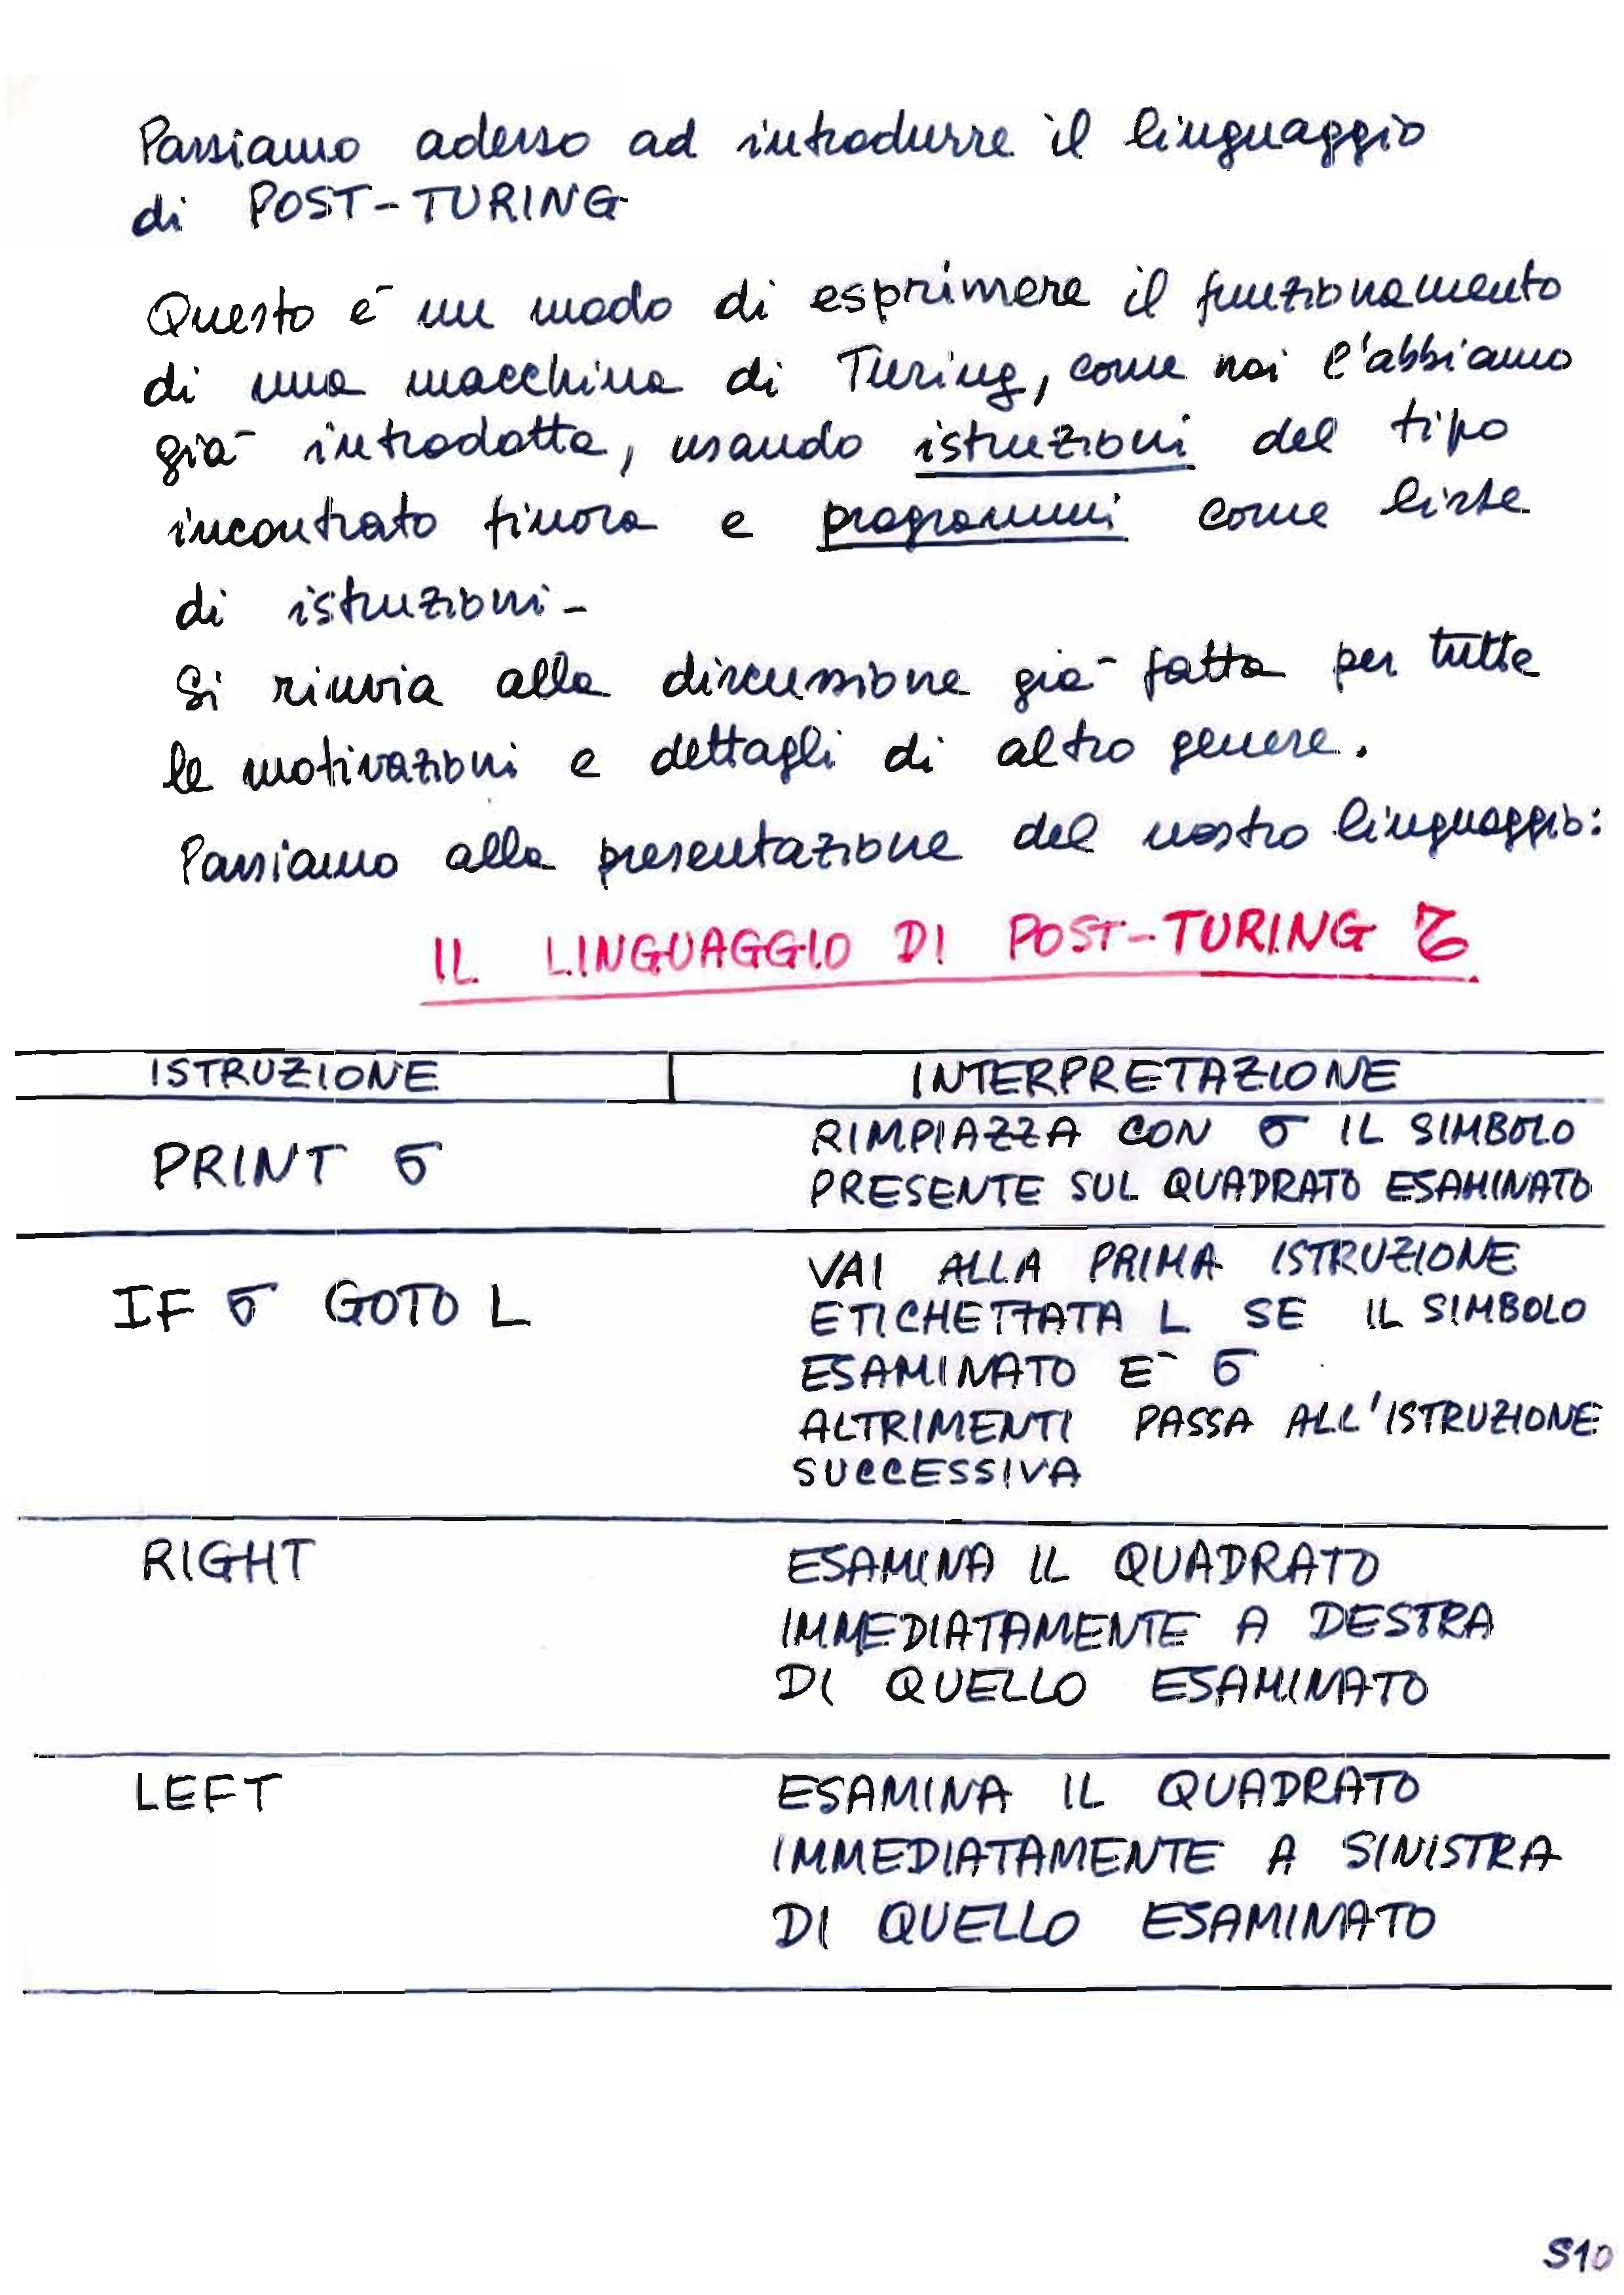 Passiamo adesso ad introdurre il linguaggio
di POST-TURING
Questo è un modo di esprimere il funzionamento
di una macchina di Turing, come noi l'abbiamo
già introdotta, usando istruzioni del tipo
incontrato finora e programmi come liste
di istruzioni-
Si rinvia alla discussione già fatta per tutte
le motivazioni e dettagli di altro genere.
Passiamo alla presentazione del nostro linguaggio:
IL LINGUAGGIO DI POST-TURING 𝒯
ISTRUZIONE INTERPRETAZIONE
PRINT σ
RIMPIAZZA CON σ IL SIMBOLO
PRESENTE SUL QUADRATO ESAMINATO
IF σ GOTO L
VAI ALLA PRIMA ISTRUZIONE
ETICHETTATA L SE IL SIMBOLO
ESAMINATO E¯ σ
ALTRIMENTI PASSA ALL'ISTRUZIONE
SUCCESSIVA
RIGHT
ESAMINA IL QUADRATO
IMMEDIATAMENTE A DESTRA
DI QUELLO ESAMINATO
LEFT
ESAMINA IL QUADRATO
IMMEDIATAMENTE A SINISTRA
DI QUELLO ESAMINATO
S10